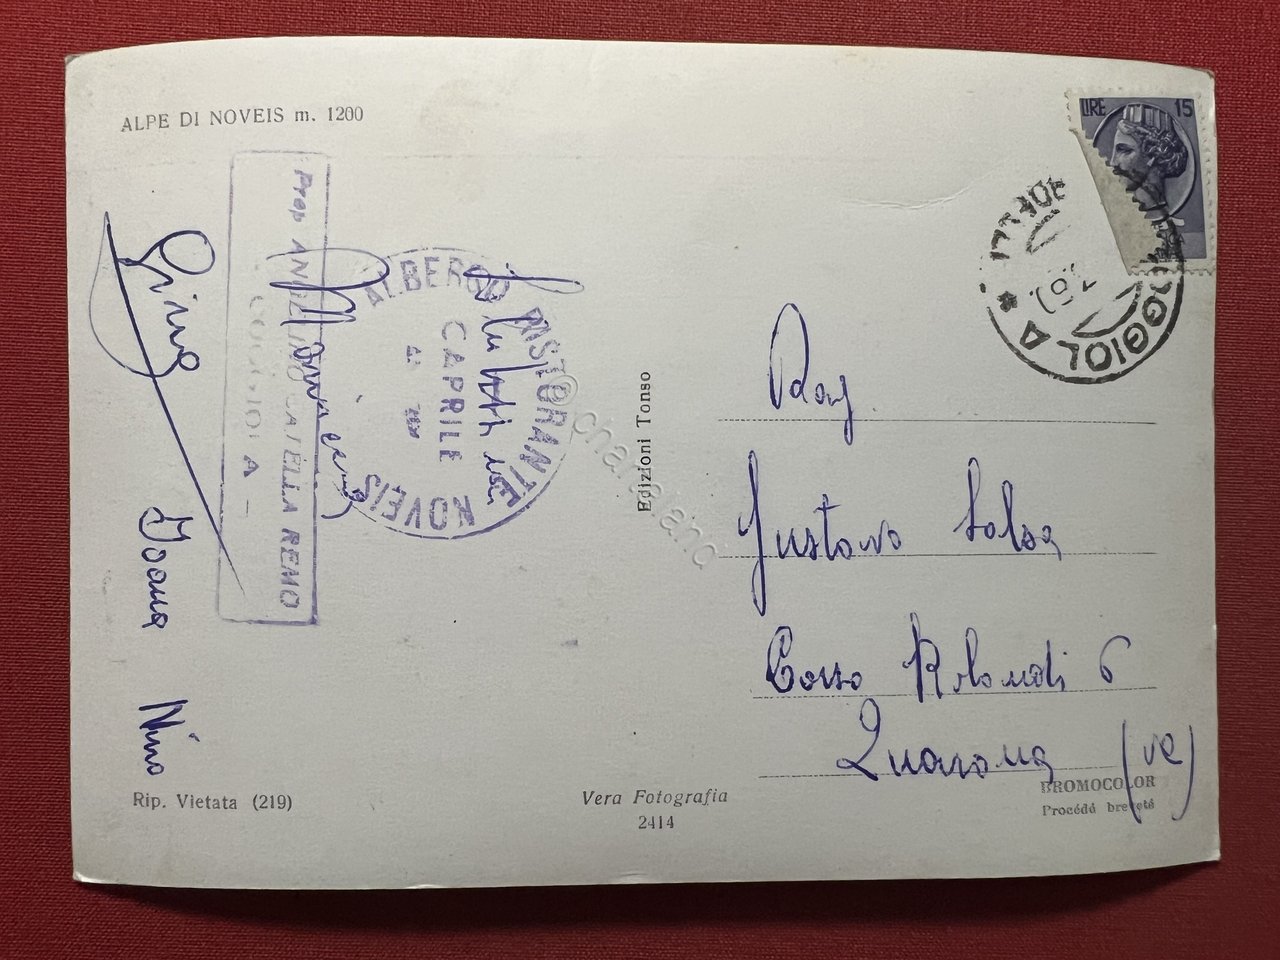 ALPE DI NOVEIS m. 1200
LIRE 15
COGGIOLA *
Prop ANGELINO CATELLA REMO
COGGIOLA -
ALBERGO RISTORANTE
CAPRILE
NOVEIS
Gino
Ivana Nino
Edizioni Tonso
Rag.
Gustavo Salsa
Corso Rolandi 6
Quarona (VC)
Rip. Vietata (219)
Vera Fotografia
2414
BROMOCOLOR
Procédé breveté